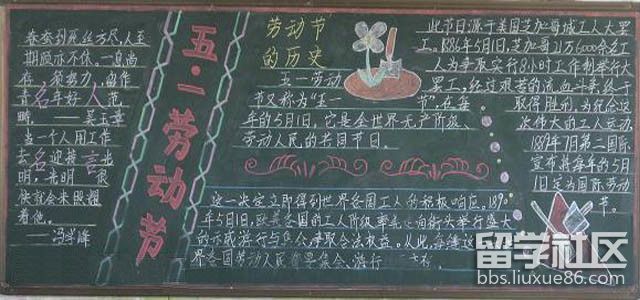 春蚕到死丝方尽,人至
期颐亦不休。一息尚
存,须努力,留作
青年好 范
畴。——吴玉章
当一个人用工作
去 迎接 光
明,光明
快就会来照耀
着他。
——冯学峰
五·一劳动节
劳动节
的历史
五一劳动
节又称为"五一
节",在每
年的5月1日,它是全世界无产阶级、
劳动人民的共同节日。
此节日源于美国芝加哥城工人大罢
工,1886年5月1日,芝加哥21万6000余名工
人为争取实行8小时工作制举行大
罢工,经过艰苦的流血斗争,终于
取得胜利,为纪念这
次伟大的工人运动,
1889年7月第二国际
宣布将每年的5月
1日定为国际劳动
节。
这一决定立即得到世界各国工人的积极响应。1890
年5月1日,欧美各国的工人阶级率先走向街头举行盛大
的示威游行与集会,争取合法权益。从此,每逢这
界各国劳动人民都要集会、游行
留学社区
bbs.liuxue86.com